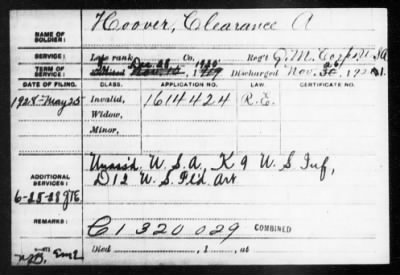 NAME OF SOLDIER: Hoover, Clearance A
SERVICE: Late rank Co. Reg't Q.M. Corps U.S.A
TERM OF SERVICE: Dec 28 1920 Discharged Nov. 1921.
DATE OF FILING. CLASS. APPLICATION NO. LAW. CERTIFICATE NO.
1928-May 25 Invalid, 1614424 R.E.
Widow,
Minor,
ADDITIONAL SERVICES: Unass'd U.S.A, K 9 U S Inf,
D12 U.S. Fld. Art
6-25-28
REMARKS: C 1 320 029 COMBINED
Died , 1 , at